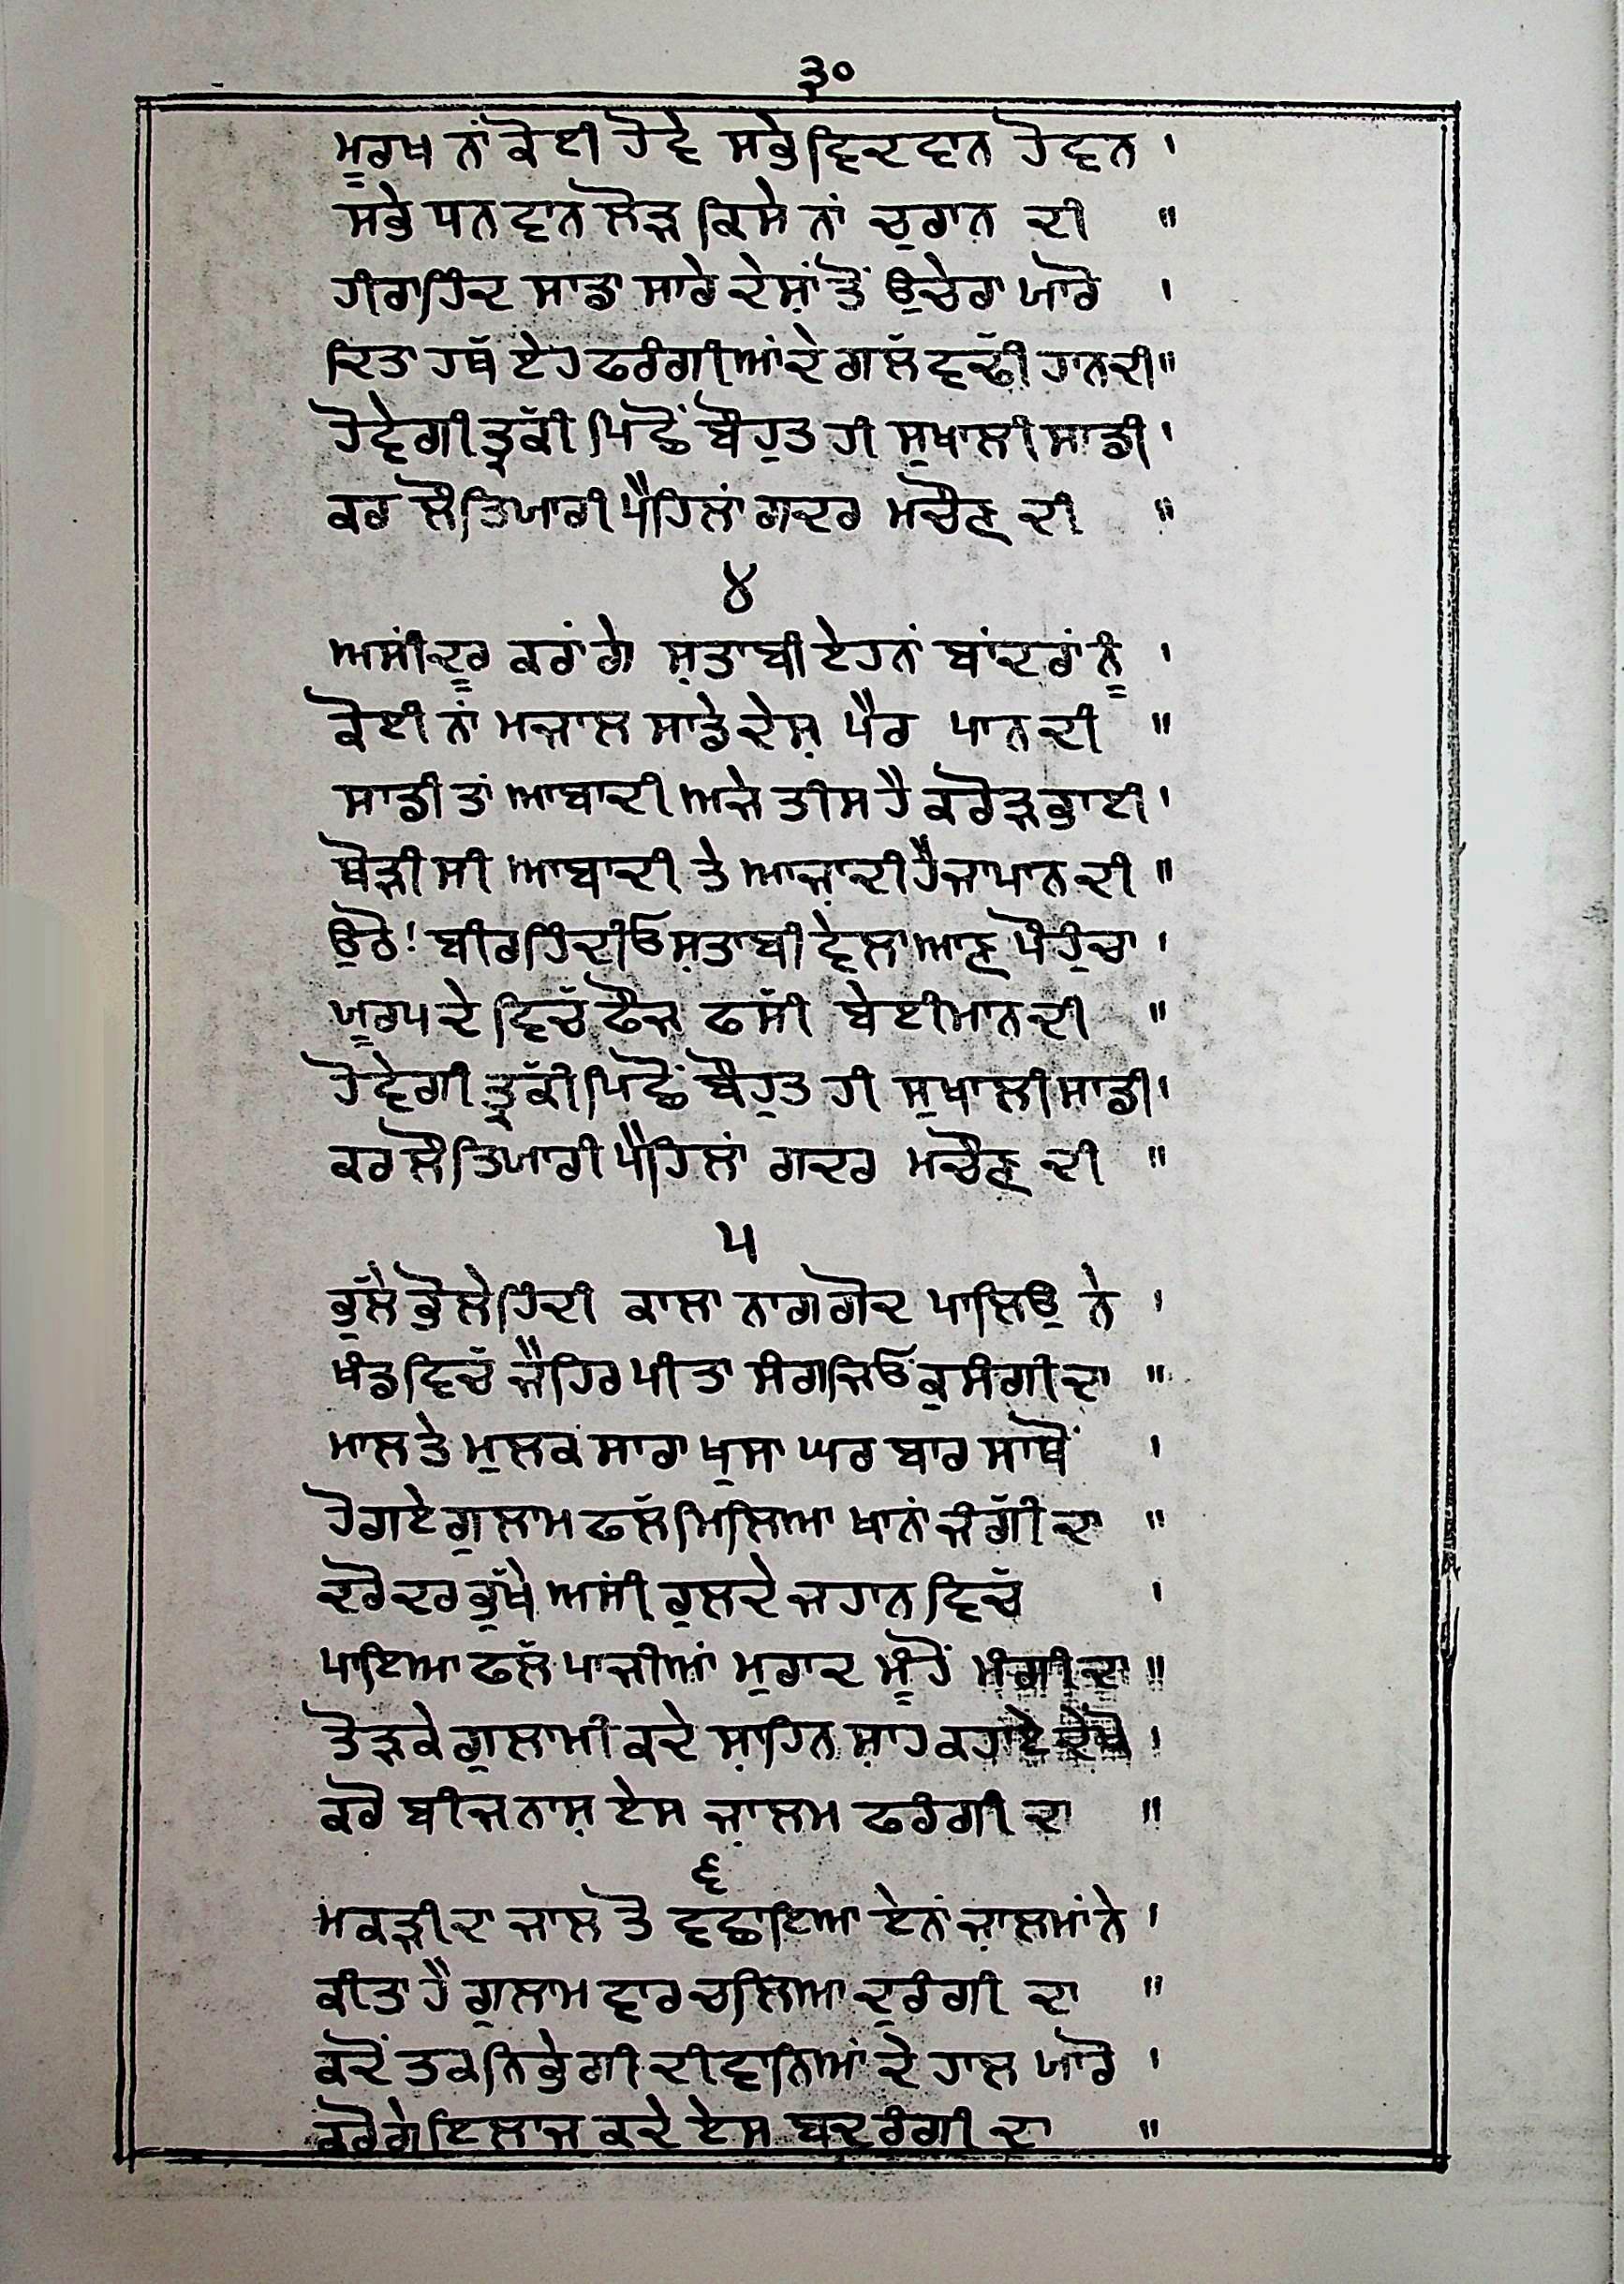 ੩੦
ਮੂਰਖ ਨਾਂ ਕੋਈ ਹੋਵੇ ਸਭੇ ਵਿਦਵਾਨ ਹੋਵਨ ।
ਸਭੇ ਧਨਵਾਨ ਲੋੜ ਕਿਸੇ ਨਾਂ ਚੁਰਾਨ ਦੀ ॥
ਹੀਰਾ ਹਿੰਦ ਸਾਡਾ ਸਾਰੇ ਦੇਸ਼ਾਂ ਤੋਂ ਉਚੇਰਾ ਯਾਰੋ ।
ਦਿਤਾ ਹਥੱ ਏਹ ਫਰੰਗੀਆਂ ਦੇ ਗਲੱ ਵਢੱੀ ਹਾਨ ਦੀ ॥
ਹੋਵੇਗੀ ਤ੍ਰਕੱੀ ਪਿਛੋਂ ਬੌਹੁਤ ਹੀ ਸੁਖਾਲੀ ਸਾਡੀ ।
ਕਰ ਲੌ ਤਿਯਾਰੀ ਪੈਹਿਲਾਂ ਗਦਰ ਮਚੌਣ ਦੀ ॥
੪
ਅਸੀਂ ਦੂਰ ਕਰਾਂਗੇ ਸ਼ਤਾਬੀ ਏਹਨਾਂ ਬਾਂਦਰਾਂ ਨੂੰ ।
ਕੋਈ ਨਾਂ ਮਜਾਲ ਸਾਡੇ ਦੇਸ਼ ਪੈਰ ਪਾਨ ਦੀ ॥
ਸਾਡੀ ਤਾਂ ਆਬਾਦੀ ਅਜੇ ਤੀਸ ਹੈ ਕਰੋੜ ਭਾਈ ।
ਥੋੜੀ ਸੀ ਆਬਾਦੀ ਤੇ ਆਜ਼ਾਦੀ ਹੈ ਜਾਪਾਨ ਦੀ ॥
ਉਠੋ! ਬੀਰ ਹਿੰਦੀਓ ਸ਼ਤਾਬੀ ਵੇਲਾ ਆਣ ਪੌਹੁੰਚਾ ।
ਯੂਰਪ ਦੇ ਵਿਚੱ ਫੌਜ ਫਸੱੀ ਬੇਈਮਾਨ ਦੀ ॥
ਹੋਵੇਗੀ ਤ੍ਰਕੱੀ ਪਿਛੋਂ ਬੌਹੁਤ ਹੀ ਸੁਖਾਲੀ ਸਾਡੀ ।
ਕਰ ਲੌ ਤਿਯਾਰੀ ਪੈਹਿਲਾਂ ਗਦਰ ਮਚੌਣ ਦੀ ॥
੫
ਭੁਲੱੇ ਭੋਲੇ ਹਿੰਦੀ ਕਾਲਾ ਨਾਗ ਗੋਦ ਪਾਲਿਉ ਨੇ ।
ਖੰਡ ਵਿਚੱ ਜ਼ੈਹਿਰ ਪੀਤਾ ਸੰਗ ਜਿਓਂ ਕੁਸੰਗੀ ਦਾ ॥
ਮਾਲ ਤੇ ਮੁਲਕ ਸਾਰਾ ਖੁਸਾ ਘਰ ਬਾਰ ਸਾਥੋਂ ।
ਹੋਗਏ ਗੁਲਾਮ ਫਲੱ ਮਿਲਿਆ ਖਾਨਾਂ ਜੰਗੱੀ ਦਾ ॥
ਦਰੋ ਦਰ ਭੁਖੱੇ ਅਸੀਂ ਰੁਲਦੇ ਜਹਾਨ ਵਿਚੱ ।
ਪਾਇਆ ਫਲੱ ਪਾਜੀਆਂ ਮੁਰਾਦ ਮੂੰਹੋਂ ਮੰਗੀ ਦਾ ॥
ਤੋੜਕੇ ਗੁਲਾਮੀ ਕਦੇ ਸ਼ਾਹਿਨ ਸ਼ਾਹ ਕਹਾਏ ਦੇਖੋ ।
ਕਰੋ ਬੀਜ ਨਾਸ਼ ਏਸ ਜ਼ਾਲਮ ਫਰੰਗੀ ਦਾ ॥
੬
ਮਕੜੀ ਦਾ ਜਾਲ ਤੋ ਵਛਾਇਆ ਏਨਾਂ ਜ਼ਾਲਮਾਂ ਨੇ ।
ਕੀਤਾ ਹੈ ਗੁਲਾਮ ਵਾਰ ਚਲਿਆ ਦੁਰੰਗੀ ਦਾ ॥
ਕਦੋਂ ਤਕ ਨਿਭੇਗੀ ਦੀਵਾਨਿਆਂ ਦੇ ਹਾਲ ਯਾਰੋ ।
ਕਰੋਗੇ ਇਲਾਜ ਕਦੇ ਏਸ ਬਦਰੰਗੀ ਦਾ ॥